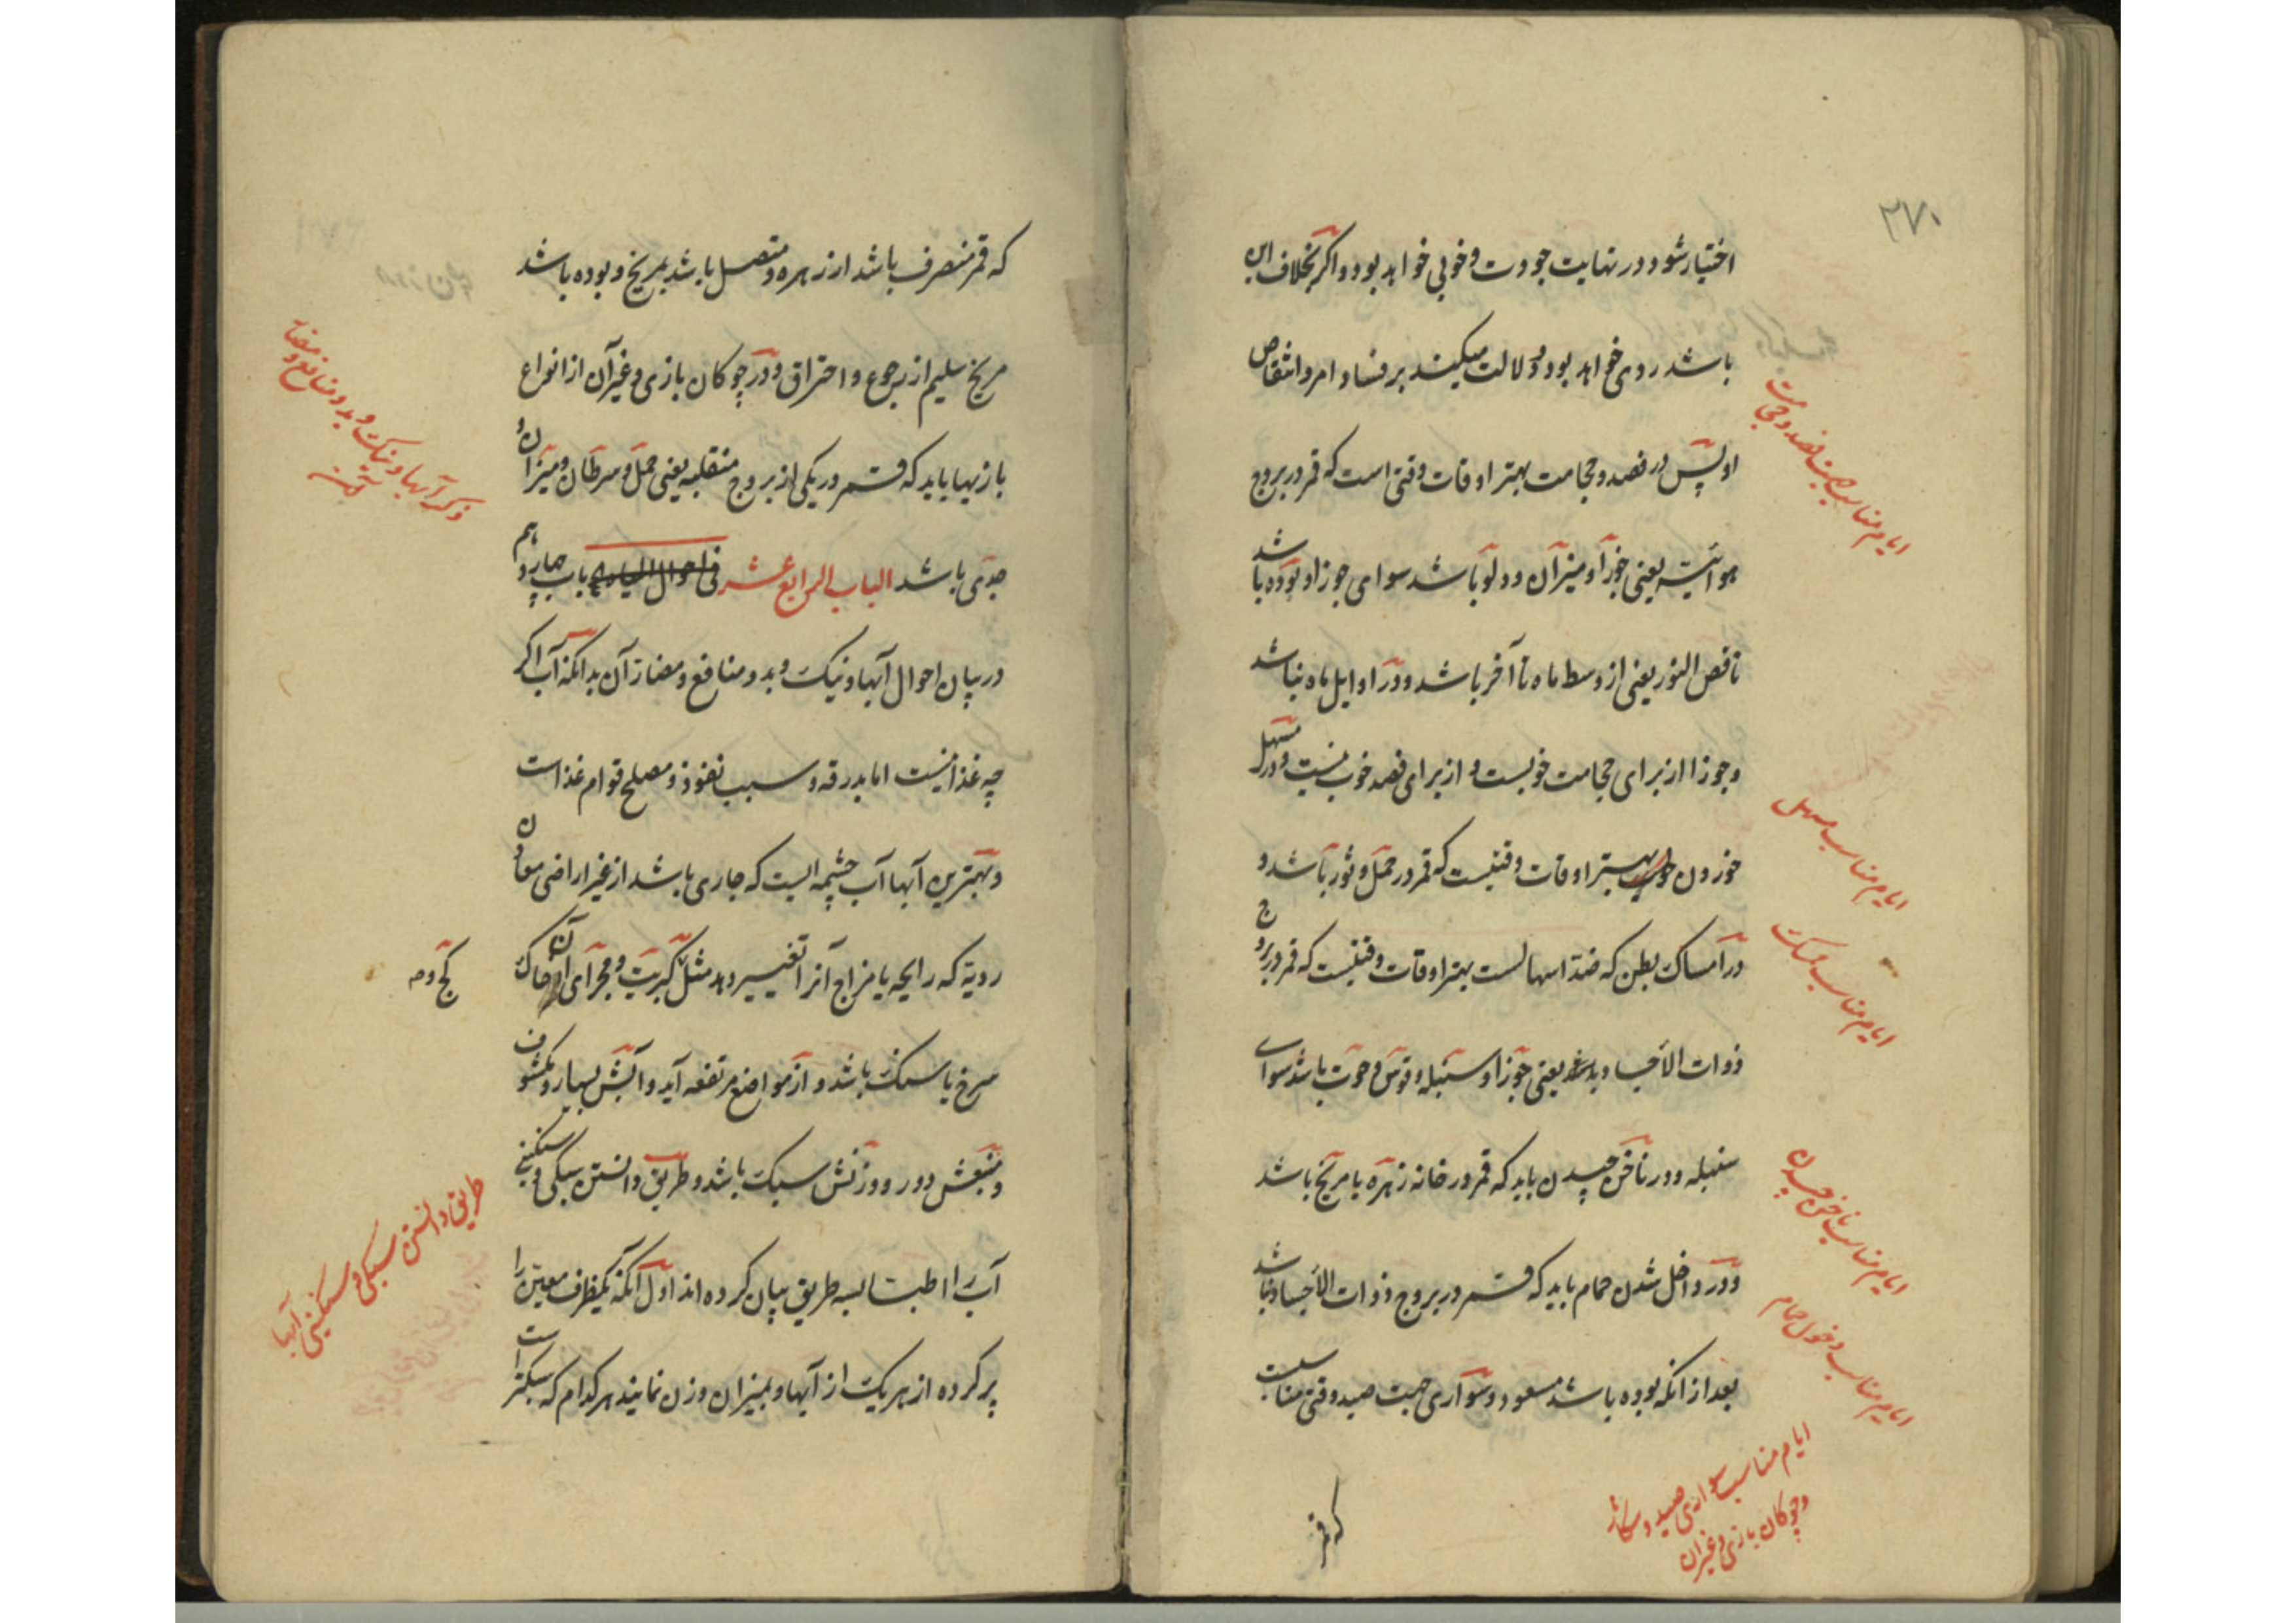 ۲۷۰
اختیار شود در نهایت جودت و خوبی خواهد بود و اگر بخلاف این
باشد ردی خواهد بود و دلالت میکند بر فساد امر و انتقاص
او پس در فصد و حجامت بهتر اوقات وقتی است که قمر در بروج
هوائیه یعنی جوزا و میزان و دلو باشد سوای جوزا و بوده باشد
ناقص النور یعنی از وسط ماه تا آخر باشد و در اوایل ماه نباشد
و جوزا از برای حجامت خوبست و از برای فصد خوب نیست و در مسهل
خوردن بهتر اوقات وقتیست که قمر در حمل و ثور باشد و
در امساک بطن که ضد اسهالست بهتر اوقات وقتیست که قمر در بروج
ذوات الأجساد باشد یعنی جوزا و سنبله و قوس و حوت باشد سوای
سنبله و در ناخن چیدن باید که قمر در خانه زهره یا مریخ باشد
و در داخل شدن حمام باید که قمر در بروج ذوات الأجساد نباشد
بعد از انکه بوده باشد مسعود و سواری جهت صید وقتی مناسبست
که قمر
ایام مناسب فصد و حجامت
ایام مناسب مسهل
ایام مناسب ممسک
ایام مناسب ناخن چیدن
ایام مناسب دخول حمام
ایام مناسب سواری صید و شکار
و چوکان بازی و غیران
که قمر منصرف باشد از زهره و متصل باشد بمریخ و بوده باشد
مریخ سلیم از رجوع و احتراق و در چوکان بازی و غیر آن از انواع
بازیها باید که قمر در یکی از بروج منقلبه یعنی حمل و سرطان و میزان و
جدی باشد الباب الرابع عشر فی احوال المیاه باب چهاردهم
در بیان احوال آبها و نیک و بد و منافع و مضار آن بدانکه آب اگر
چه غذا نیست اما بدرقه و سبب نفوذ و مصلح قوام غذاست
و بهترین آبها آب چشمه ایست که جاری باشد از غیر اراضی معادن
ردیة که رایحه یا مزاج آنرا تغییر دهد مثل کبریت و مجرای آن خاک
سرخ یا سنک باشد و از مواضع مرتفعه آید و آبش بسیار و مکشوف
و منبعش دور و وزنش سبک باشد و طریق دانستن سبکی و سنکینی
آب را اطبا بسه طریق بیان کرده اند اول آنکه یکظرف معین را
پر کرده از هر یک از آبها و بمیزان وزن نمایند هر کدام که سبکتر است
ذکر آبها و نیک و بد و منافع و مضار
طریق دانستن سبکی و سنکینی آبها